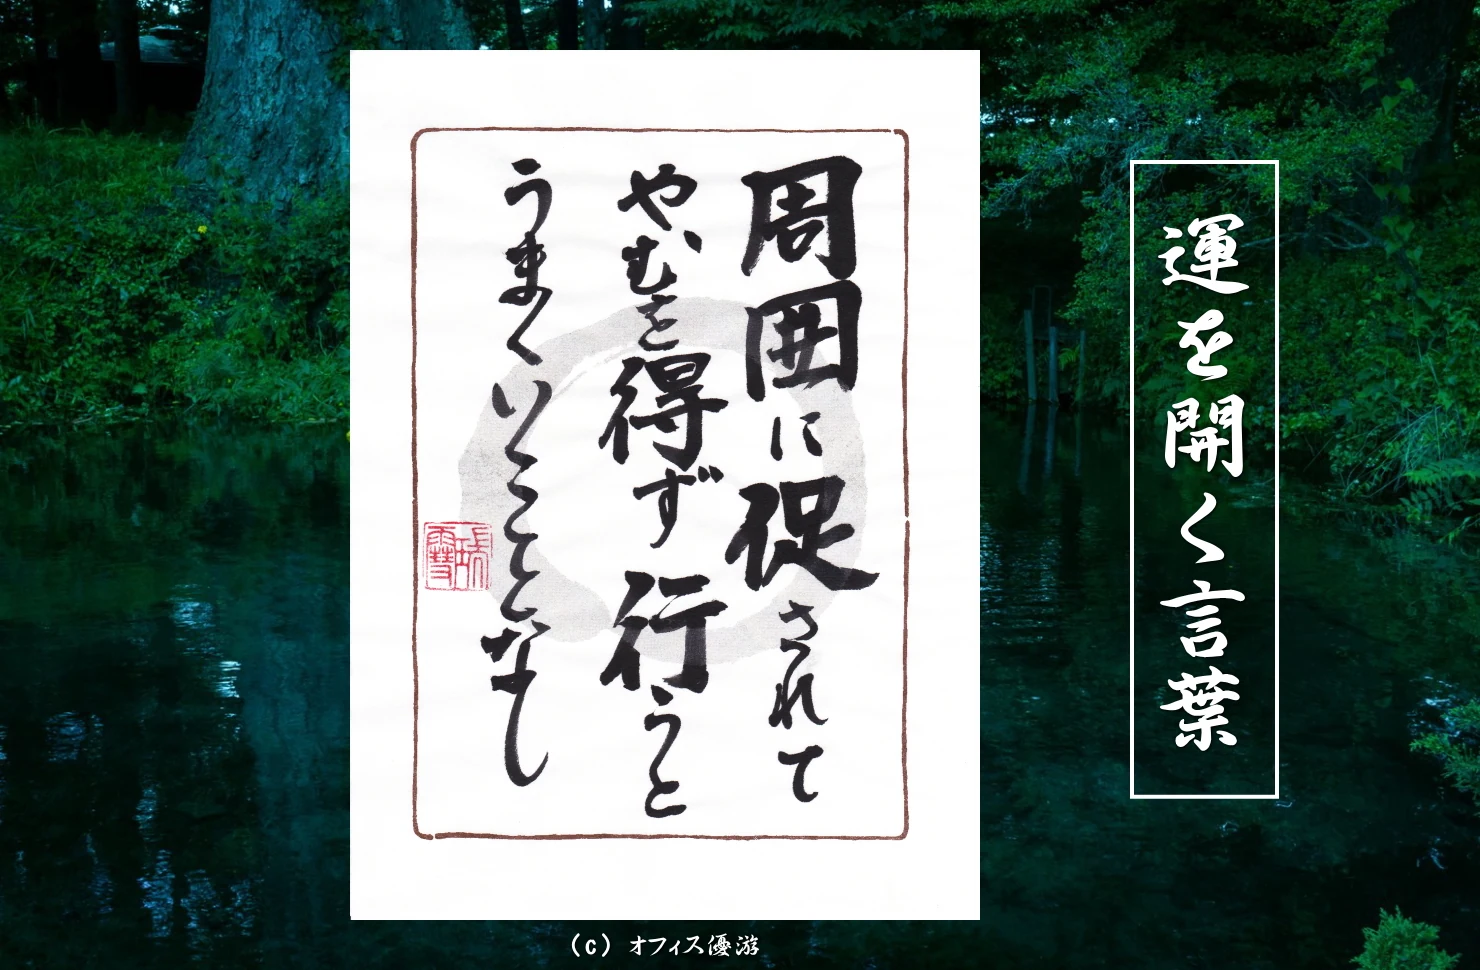 運を開く言葉
周囲に促されて
やむを得ず行うと
うまくいくことなし
(c) オフィス優游